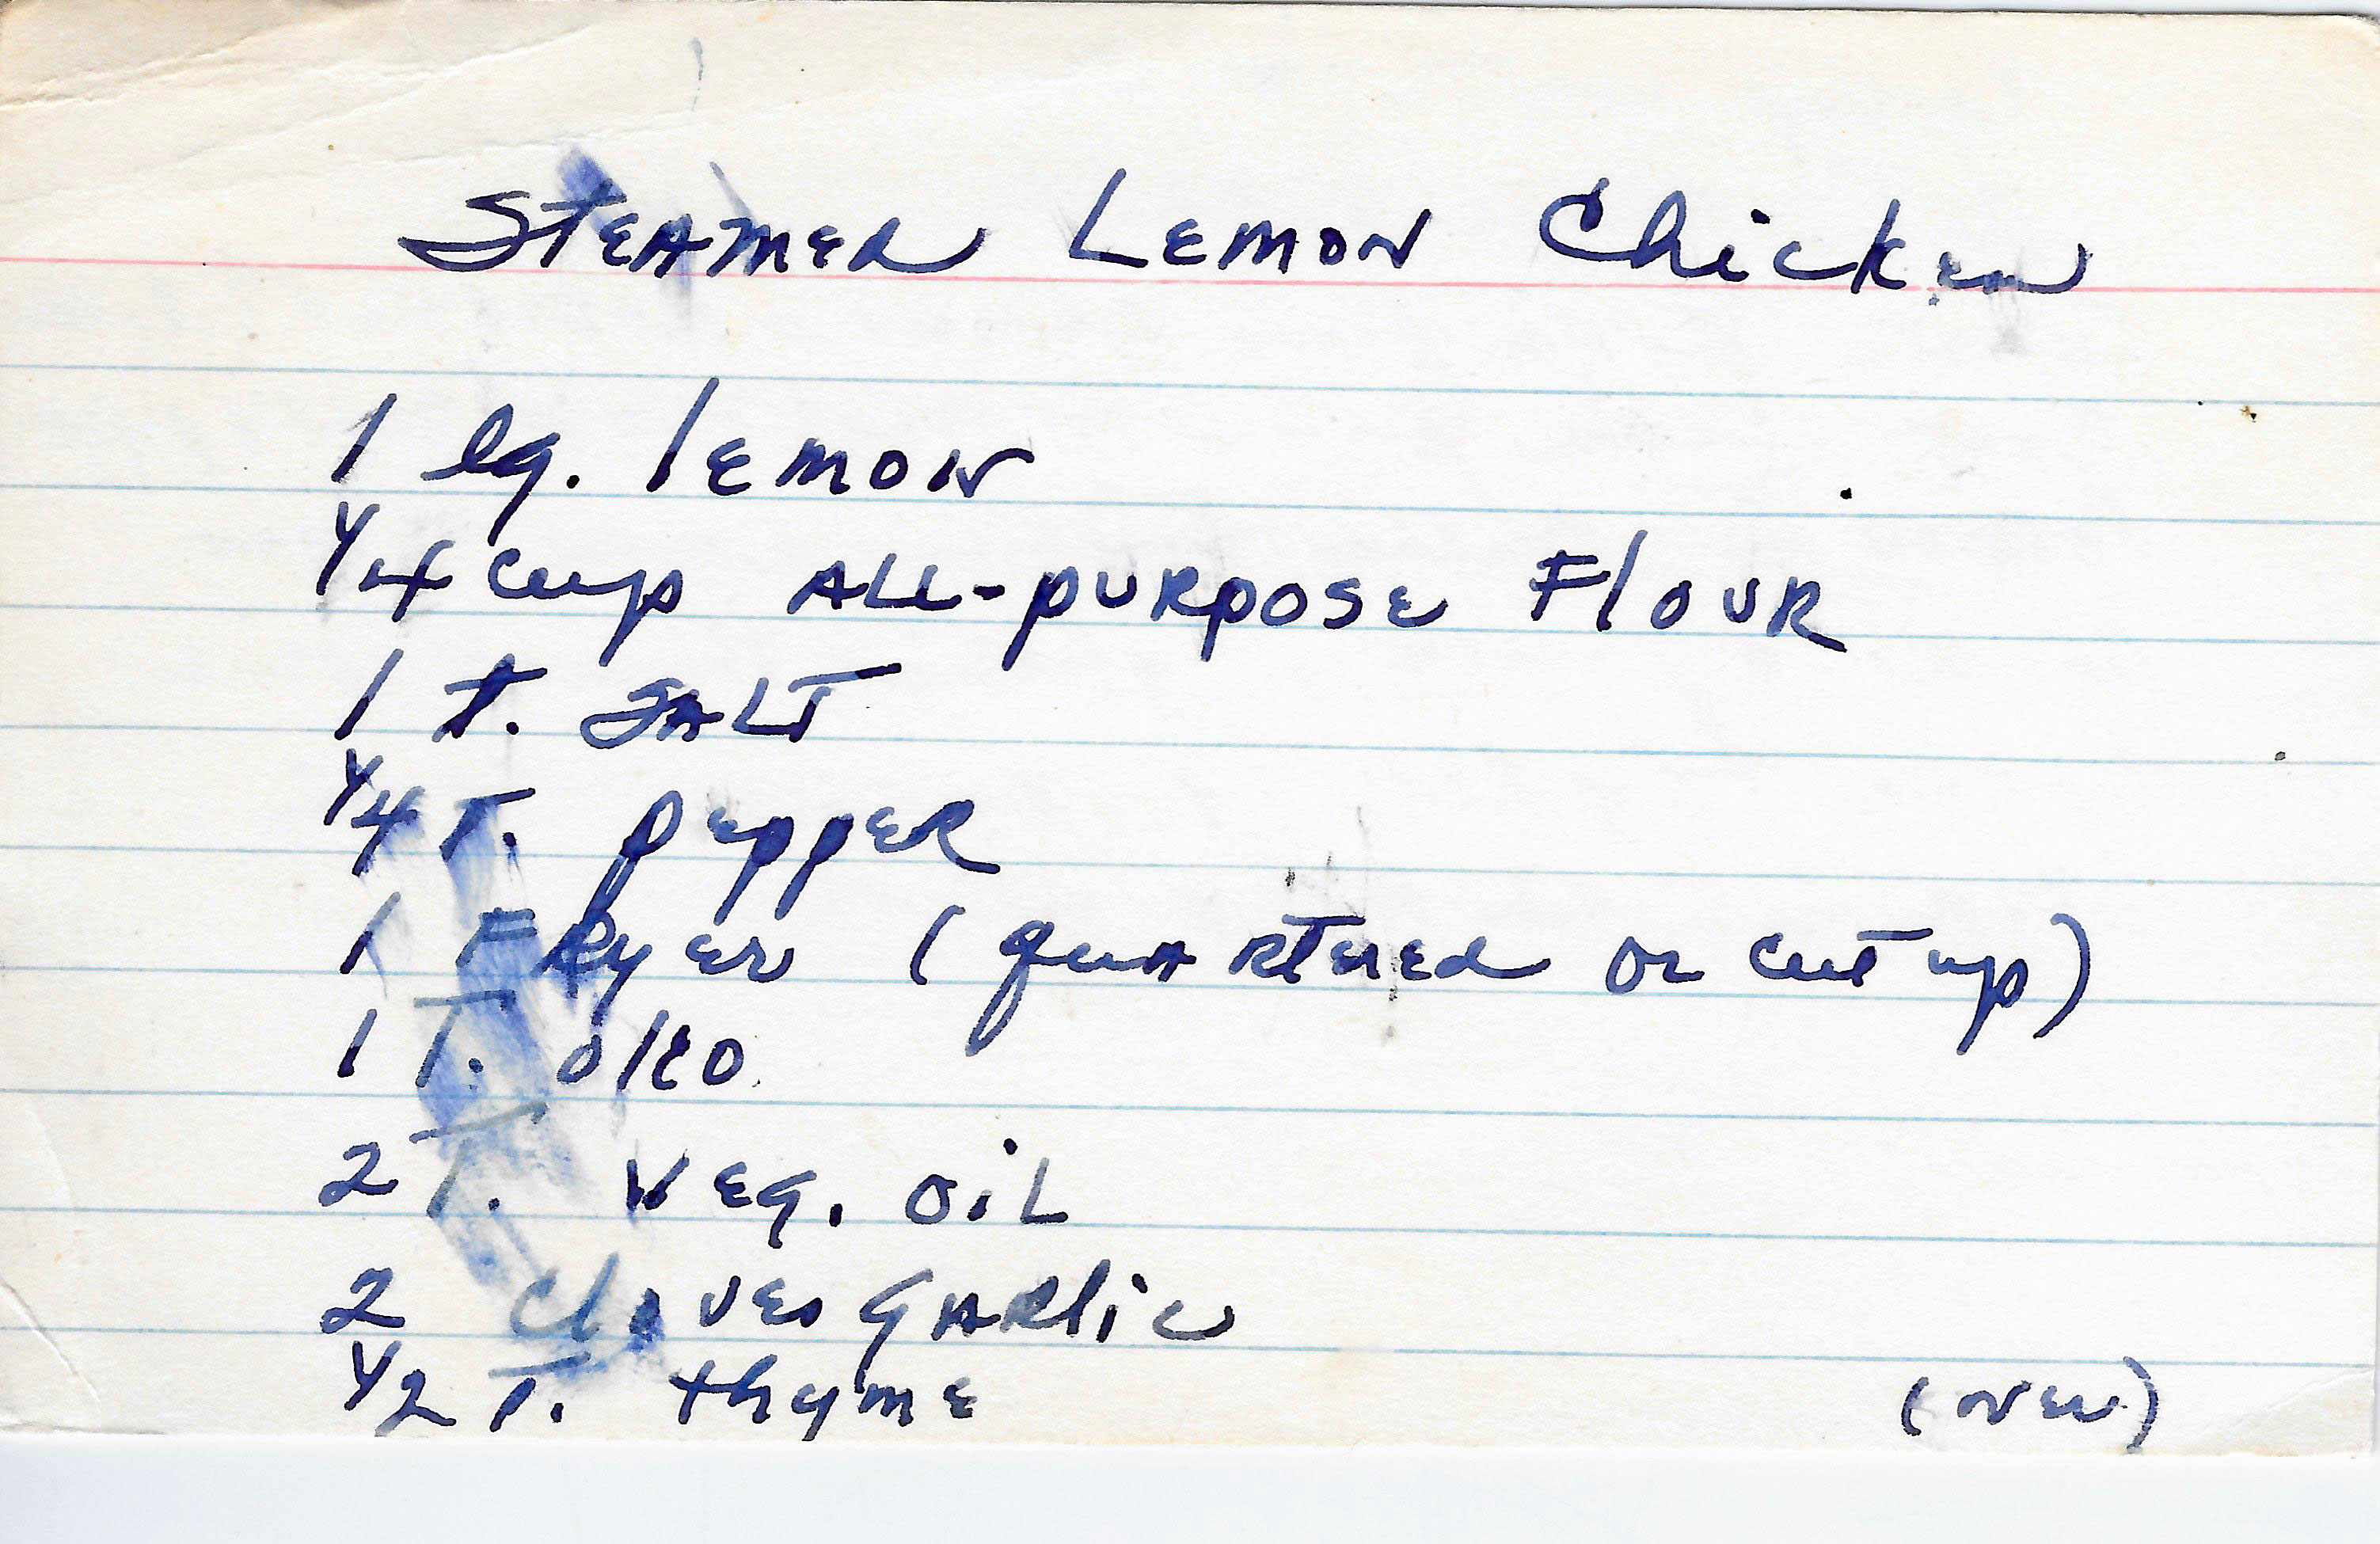 STEAMER LEMON Chicken
1 lg. lemon
1/4 cup ALL-PURPOSE Flour
1 t. SALT
1/4 T. pepper
1 FRyer (quARTERed or cut up)
1 T. oleo
2 T. Veg. OiL
2 Cloves GARlic
1/2 T. thyme
(over)